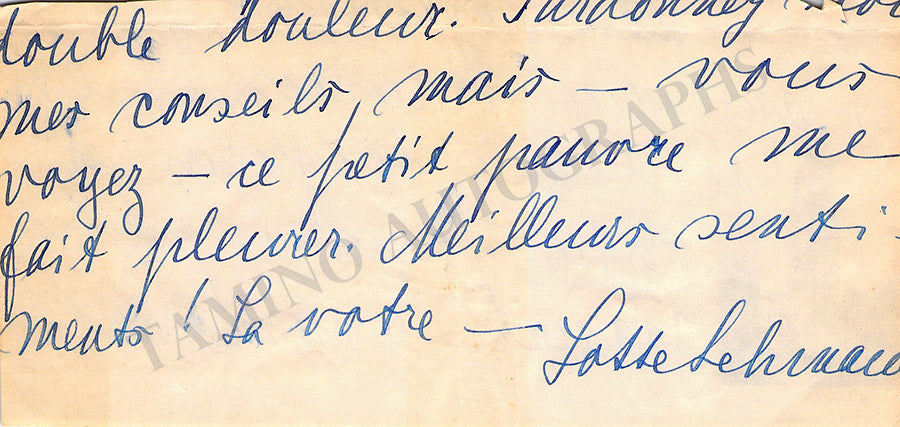 double douleur. Pardonnez moi
mes conseils, mais — vous
voyez — ce petit pauvre me
fait pleurer. Meilleurs senti-
ments! La votre —
Lotte Lehmann
TAMINO AUTOGRAPHS